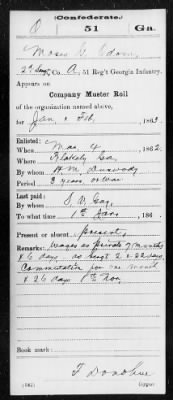 (Confederate.)
O 51 Ga.
Moses Odom
2d Sergt, Co. A, 51 Reg't Georgia Infantry.
Appears on
Company Muster Roll
of the organization named above,
for Jan & Feb, 1863.
Enlisted:
When Mar 4, 1862.
Where Blakely Ga.
By whom
Period 3 years or war
Last paid:
By whom
To what time 1st Jan, 186
Present or absent present
Remarks: wages as private 7 months
& 6 days as Sergt 2 & 22 days
Commutation for one month
& 26 days
Book mark:
F Donohue
(642) Copyist.